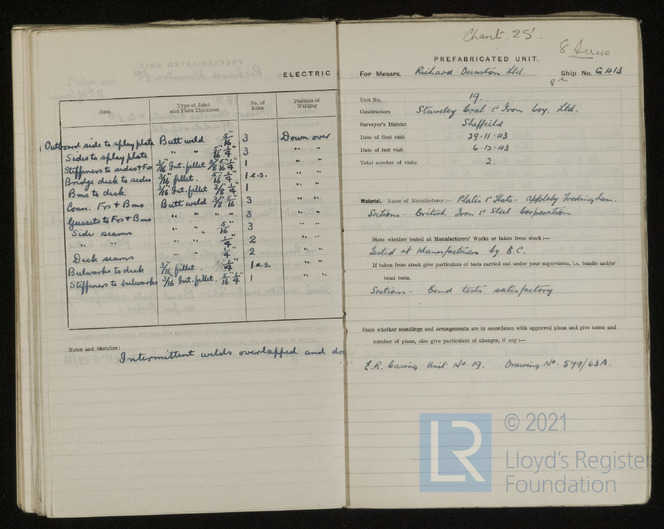 ELECTRIC
Item
Type of Joint and Plate Thickness
No. of Runs
Position of Welding
Outboard side to splay plate Butt weld 5/16" 3 Down over
Sides to splay plate " " 5/16 1/4" 3 " "
Stiffeners to sides & Frs 3/16" Int. fillet 3/8 5/16 1/4" 1 " "
Bridge deck to sides 3/16" fillet. 5/16 1/4" 1 e.s. " "
Bms to deck 3/16" Int. fillet 3/8 1/4" 1 " "
Conn. Frs & Bms Butt weld 3/8 5/16" 3 " "
Gussets to Frs & Bms " " 3 " "
Side seams " " 5/16" 3 " "
" " " " 1/4" 2 " "
Deck seams " " 1/4" 2 " "
Bulworks to deck 3/16" fillet. 1/4" 1 e.s. " "
Stiffeners to bulworks 3/16" Int. fillet 5/16 1/4" 1 " "
Notes and Sketches:
Intermittent welds overlapped and do
Chant. 25'.
PREFABRICATED UNIT.
For Messrs. Richard Dunston Ltd Ship No. G 413
Unit No. 19
Constructors Staveley Coal & Iron Coy. Ltd.
Surveyor's District Sheffield
Date of first visit 29-11-43
Date of last visit 6-12-43
Total number of visits 2.
Material. Name of Manufacturer:— Plates & Flats. Appleby Frodingham.
Sections. British Iron & Steel Corporation
State whether tested at Manufacturers' Works or taken from stock:—
Tested at Manufacturers by B.C.
If taken from stock give particulars of tests carried out under your supervision, i.e. tensile and/or
bend tests.
Sections - Bend tests satisfactory
State whether scantlings and arrangements are in accordance with approved plans and give name and
number of plans, also give particulars of changes, if any:—
E.R. Casing Unit No 19. Drawing No. 549/63A.
© 2021
LR
Lloyd's Register
Foundation